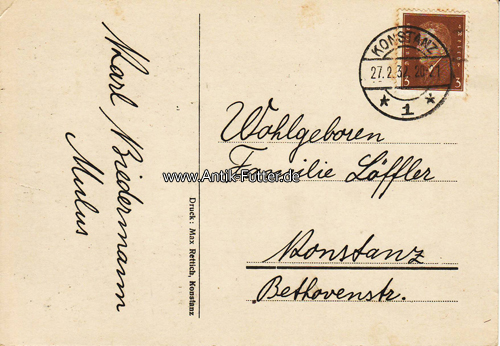 Karl Biedermann
KONSTANZ
27.2.37. 20-21
* 1 *
3 3
Wohlgeboren
Familie Löffler
www.Antik-Futter.de
Konstanz
Bethovenstr.
Druck: Max Rettich, Konstanz